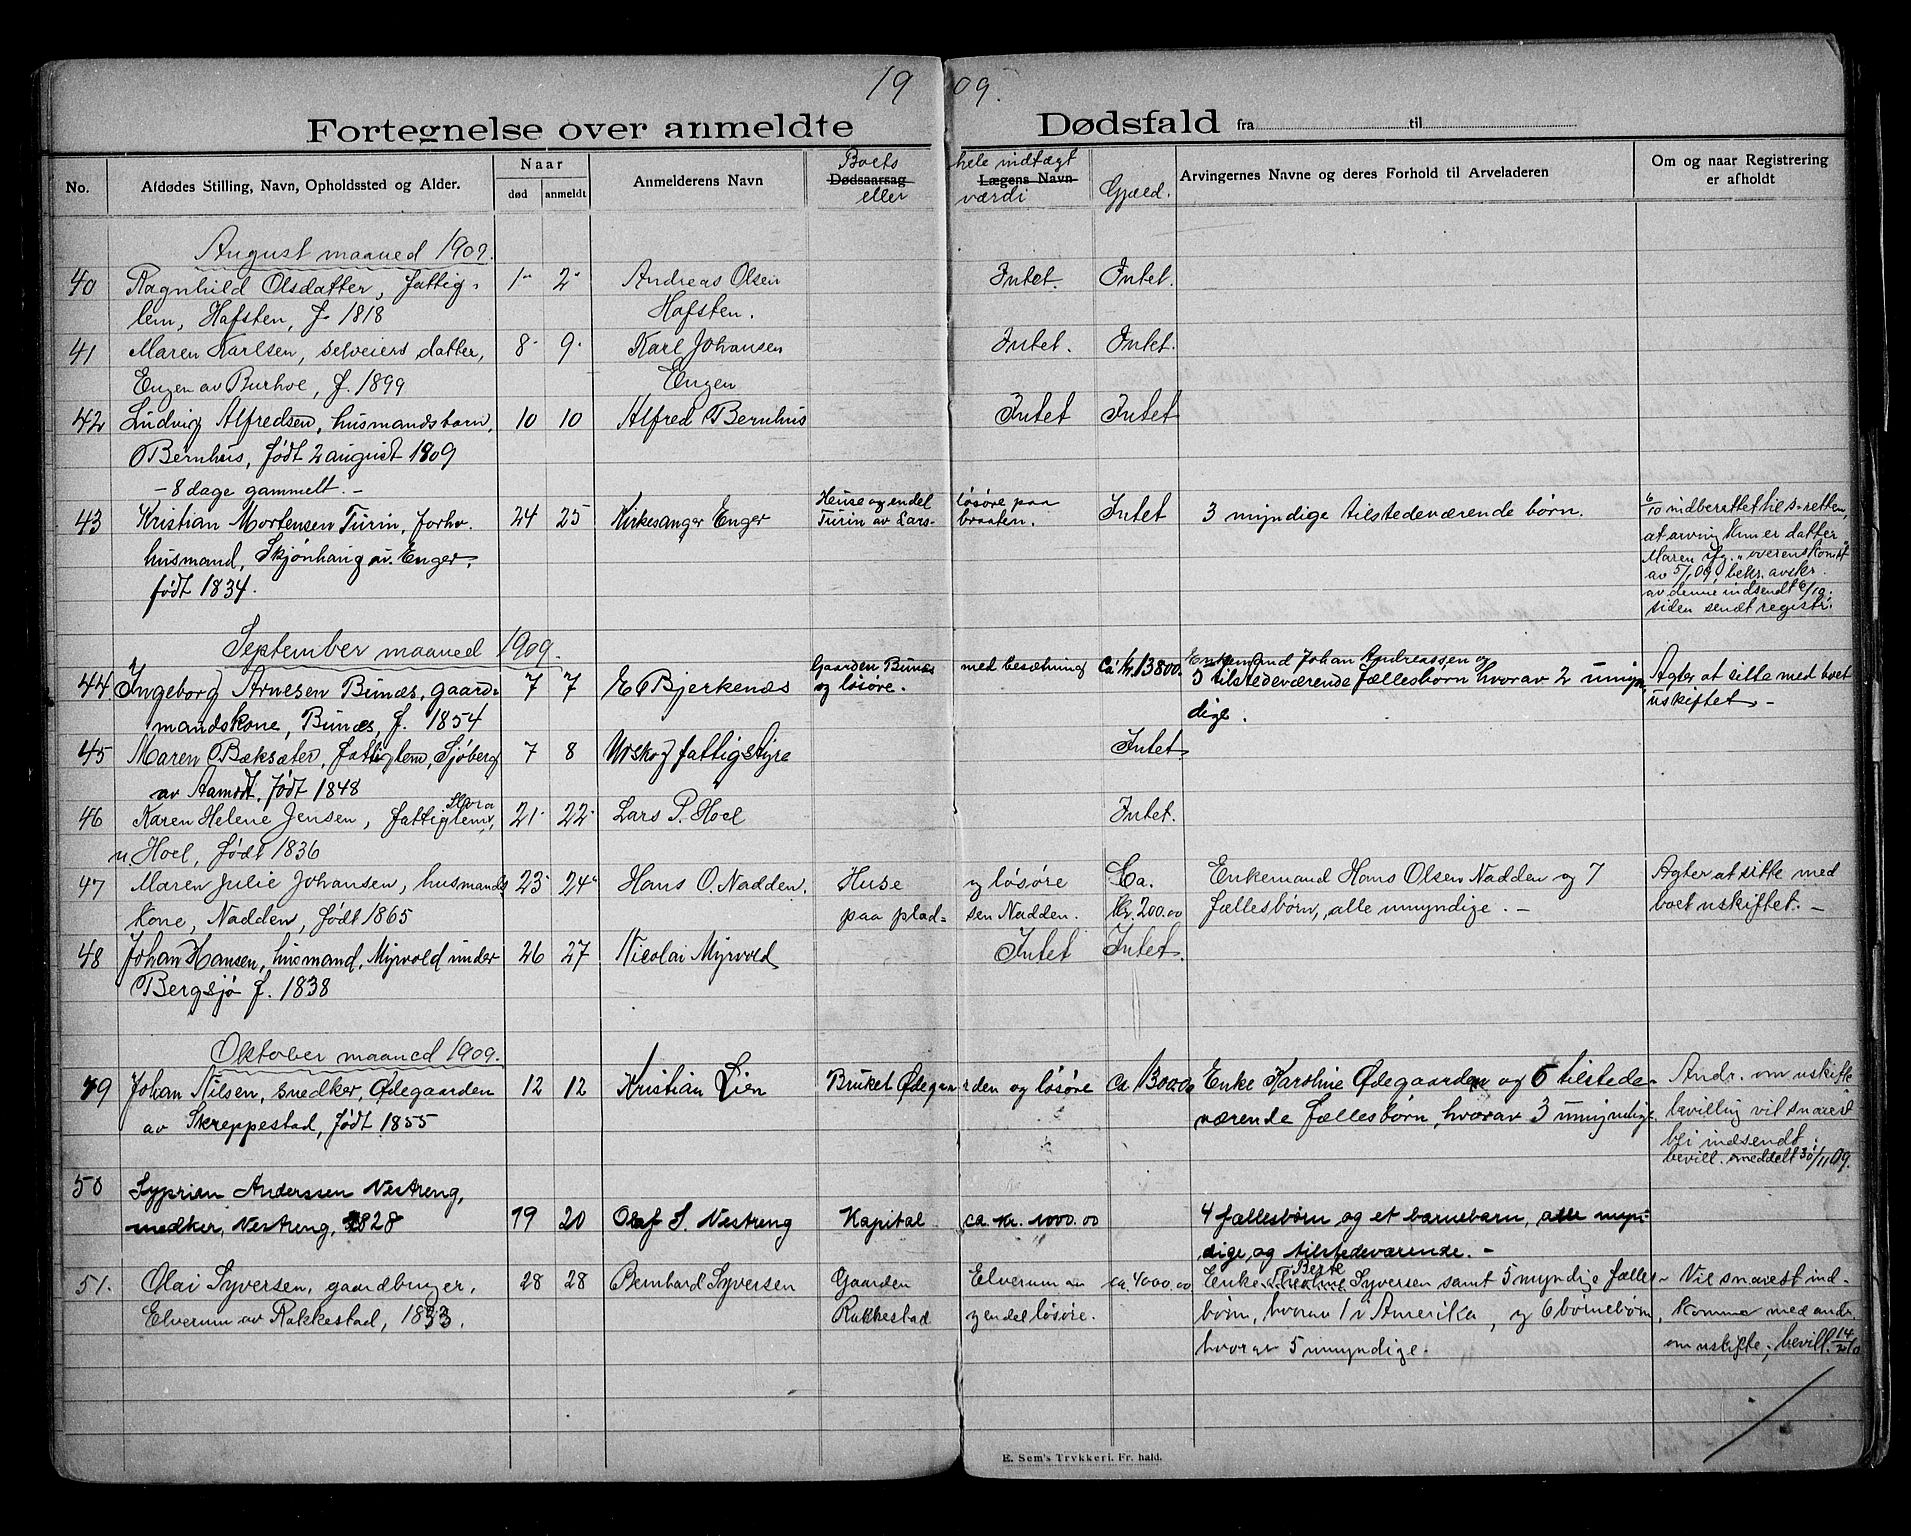 1909.
Fortegnelse over anmeldte Dødsfald fra til
No.
Afdødes Stilling, Navn, Opholdssted og Alder.
Naar
død anmeldt
Anmelderens Navn
Boets hele indtægt
Dødsaarsag Lægens Navn
eller værdi
Gjæld.
Arvingernes Navne og deres Forhold til Arveladeren
Om og naar Registrering
er afholdt
August maaned 1909.
40 Ragnhild Olsdatter, fattig- 1 2 Andreas Olsen Intet. Intet.
lem, Hafsten, f. 1818 Hafsten.
41 Maren Karlsen, selveiers datter, 8 9 Karl Johansen Intet. Intet.
Engen av Burhoe, f. 1899 Engen
42 Ludvig Alfredsen, husmandsbarn, 10 10 Alfred Bernhus Intet Intet
Bernhus, født 2 august 1809
- 8 dage gammelt. -
43 Kristian Mortensen Turin, forhv. 24 25 Kirkesanger Enger Huse og endel løsøre paa Turin av Lars-braaten. Intet 3 myndige tilstedeværende børn.
husmand, Skjønhaug av Enger,
født 1834.
6/10 indberettet til s-retten,
at arving kun er datter
Maren ifg. "overenskomst"
av 5/09, bekr. avskr.
av denne indsendt 6/10,
siden sendt registr.
September maaned 1909.
44 Ingeborg Arnesen Bunæs, gaard- 7 7 E Bjerkenæs Gaarden Bunæs med besætning og løsøre. ca kr. 13800. Enkemand Johan Andreassen og
mandskone, Bunæs, f. 1854 5 tilstedeværende fællesbørn hvorav 2 umyn-
dige.
Agter at sitte med boet
uskiftet -
45 Maren Bæksæter, fattiglem, Sjøberg 7 8 Urskog fattigstyre Intet
av Aamodt, født 1848
46 Karen Helene Jensen, fattiglem, 21 22 Lars P. Hoel Intet.
u. Hoel, født 1836
47 Maren Julie Johansen, husmands 23 24 Hans O. Nadden. Huse og løsøre Ca. Enkemand Hans Olsen Nadden og 7 Agter at sitte med
kone, Nadden, født 1865 paa plad-sen Nadden. kr. 200.00 fællesbørn, alle umyndige. - boet uskiftet. -
48 Johan Hansen, husmand, Myrvold under 26 27 Nicolai Myrvold Intet Intet.
Bergsjø f. 1838
Oktober maaned 1909.
49 Johan Nilsen, snedker, Ødegaarden 12 12 Kristian Lien Bruket Ødegaarden og løsøre ca. 1300.00 Enke Karoline Ødegaarden og 6 tilstede-
av Skreppestad, født 1855 værende fællesbørn, hvorav 3 umyndige.
Andr. om uskifte
bevilling vil snarest
bli indsendt;
bevill. meddelt 30/11 09.
50 Syprian Anderssen Nestreng,
snedker, Nestreng, 1828 19 20 Olaf S. Nestreng Kapital ca. kr. 1000.00 4 fællesbørn og et barnebarn, alle myn-
dige, og tilstedeværende. -
51. Olai Syversen, gaardbruger, 28 28 Bernhard Syversen Gaarden Elverum av ca. 4000.00 Enke Berte Syversen samt 5 myndige fælles- Vil snarest ind-
Elverum av Rakkestad, 1833. Rakkestad og endel løsøre. børn, hvorav 1 i Amerika, og 6 børnebørn, komme med andr.
hvorav 5 umyndige. om uskifte; bevill. 14/2 10
E. Sem's Trykkeri, Fr. hald.